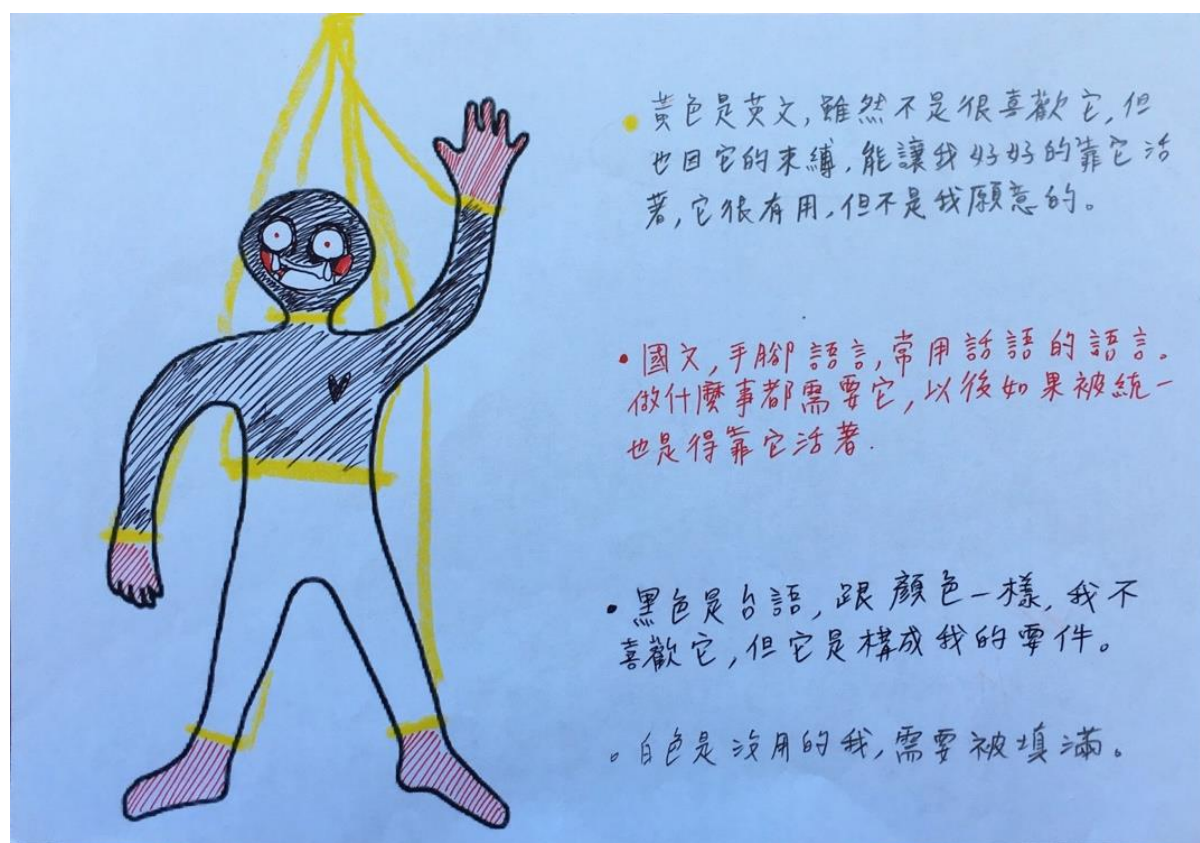 黃色是英文,雖然不是很喜歡它,但
也因它的束縛,能讓我好好的靠它活
著,它很有用,但不是我願意的。
國文,手腳語言,常用話語的語言。
做什麼事都需要它,以後如果被統一
也是得靠它活著.
黑色是台語,跟顏色一樣,我不
喜歡它,但它是構成我的要件。
白色是沒用的我,需要被填滿。